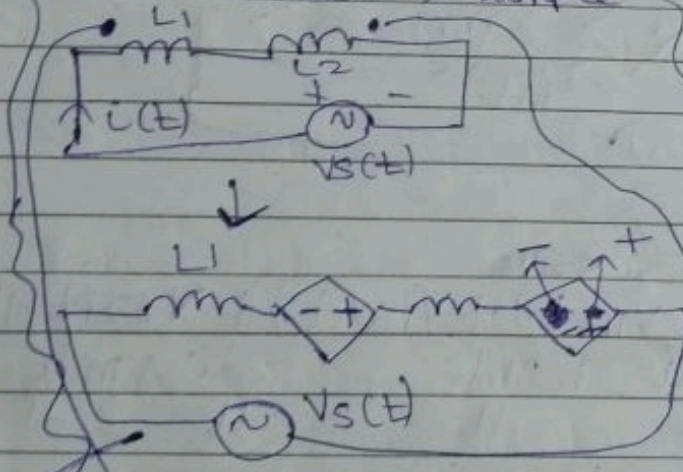 L1
L2
i(t)
+ -
Vs(t)
↓
L1
- +
- +
Vs(t)